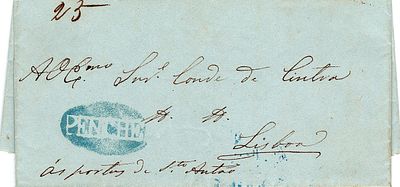 25
Ao Exmo Snr. Conde de Cintra
PENICHE
H. H.
Lisboa
ás portas de Sto Antão